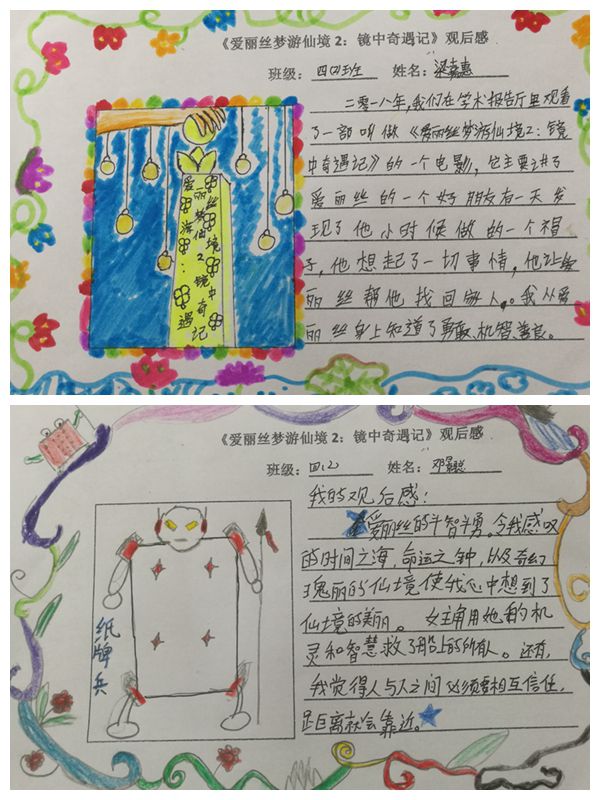 《爱丽丝梦游仙境2：镜中奇遇记》观后感
班级：四(2)班 姓名：梁嘉惠
二零一八年,我们在学术报告厅里观看
了一部叫做《爱丽丝梦游仙境2：镜
中奇遇记》的一个电影，它主要讲了
爱丽丝的一个好朋友有一天发
现了他小时候做的一个帽
子,他想起了一切事情，他让爱
丽丝帮他找回家人。我从爱
丽丝身上知道了勇敢、机智、善良。
爱丽丝
梦游仙境
2：镜中奇
遇记
《爱丽丝梦游仙境2：镜中奇遇记》观后感
班级：四、2 姓名：邓
我的观后感！
爱丽丝的斗智斗勇。令我感叹
的时间之海，命运之钟，以及奇幻
瑰丽的仙境使我心中想到了
仙境的美丽。 女主角用她的机
灵和智慧救了船上的所有人。还有，
我觉得人与人之间必须要相互信任，
距离就会靠近。
纸牌兵